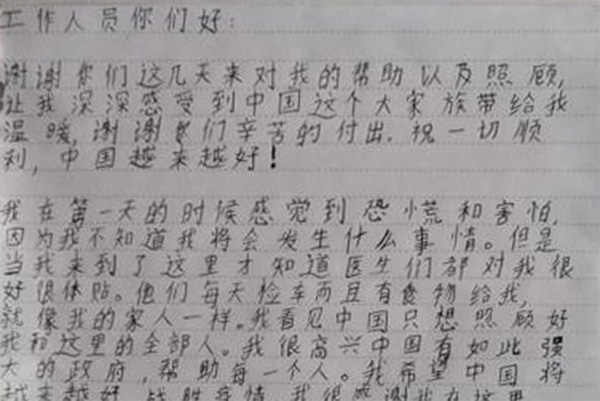 工作人员你们好:
谢谢你们这几天来对我的帮助以及照顾,
让我深深感受到中国这个大家族带给我
温暖,谢谢你们辛苦的付出.祝一切顺
利,中国越来越好!
我在第一天的时候感觉到恐慌和害怕,
因为我不知道我将会发生什么事情。但是
当我来到了这里才知道医生们都对我很
好很体贴。他们每天检车而且有食物给我,
就像我的家人一样。我看见中国只想照顾好
我和这里的全部人。我很高兴中国有如此强
大的政府,帮助每一个人。我希望中国将
越来越好,战胜疫情,我很感谢我在这里